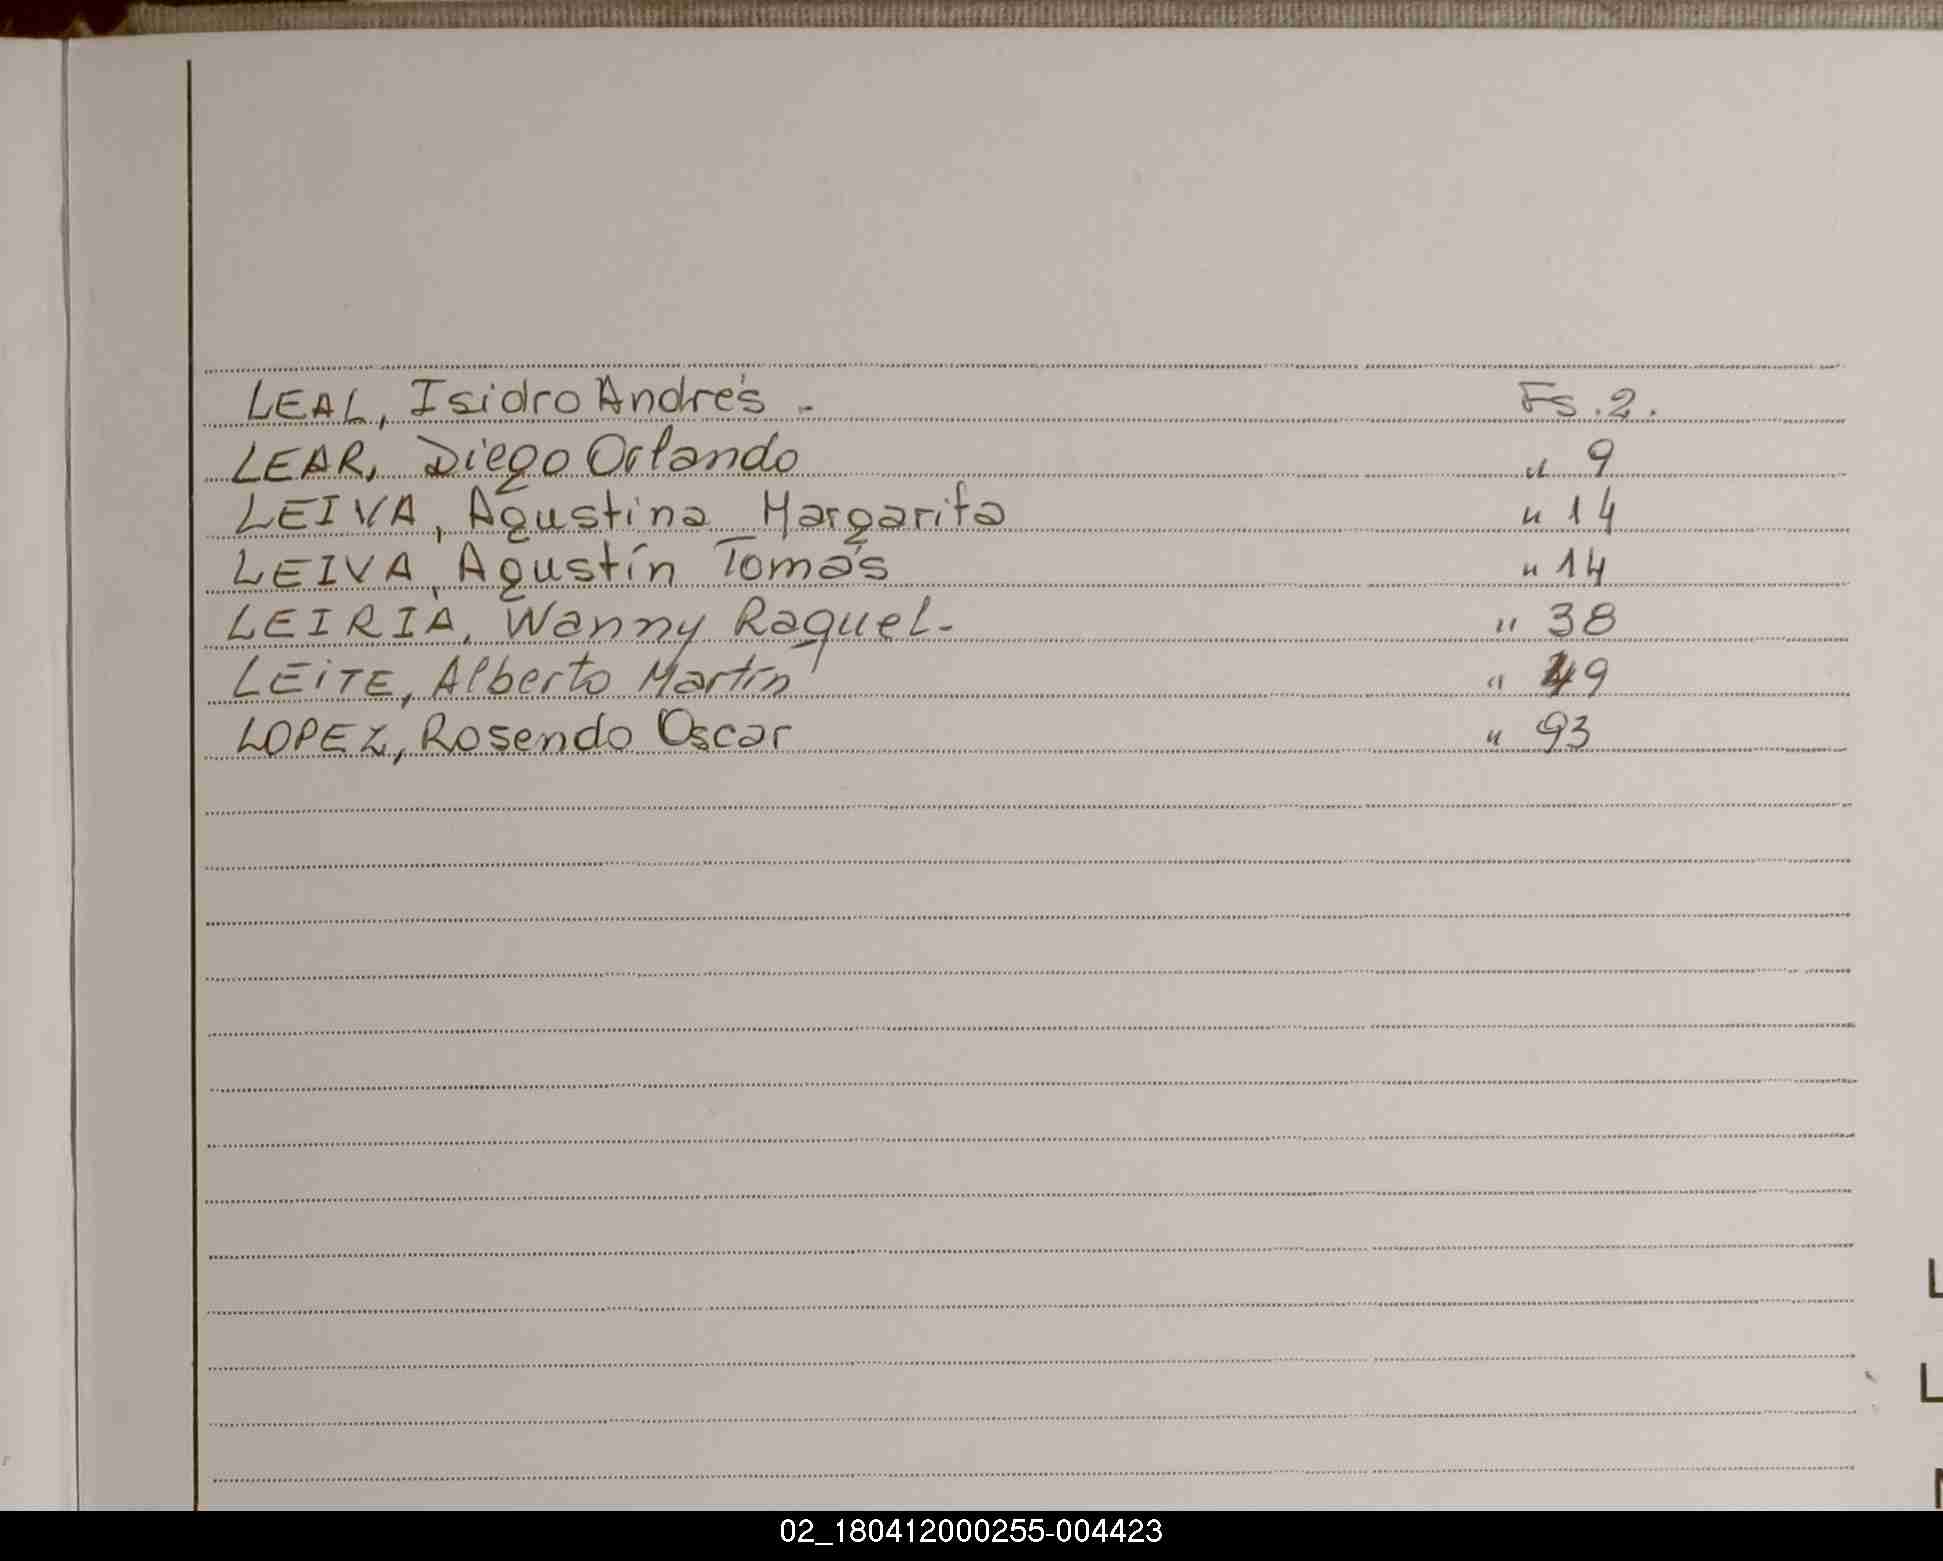 LEAL, Isidro Andrés - Fs. 2.
LEAR, Diego Orlando " 9
LEIVA, Agustina Margarita " 14
LEIVA, Agustín Tomás " 14
LEIRIA, Wanny Raquel - " 38
LEiTE, Alberto Martín " 49
LOPEZ, Rosendo Oscar " 93
L
L
02_180412000255-004423